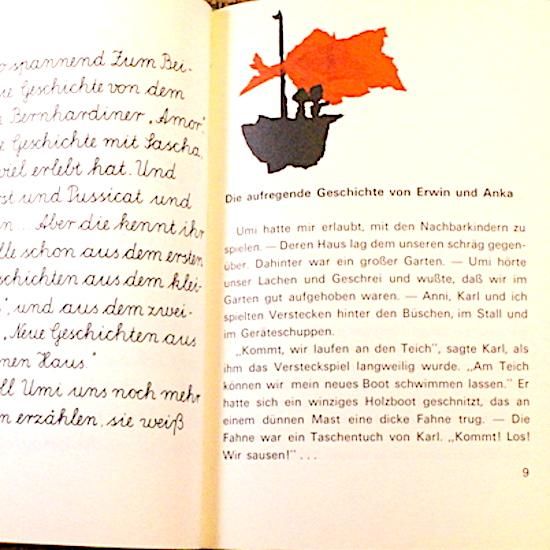 spannend Zum Bei-
Geschichte von dem
Bernhardiner „Amor".
Geschichte mit Sascha,
viel erlebt hat. Und
und Pussicat und
Aber die kennt ihr
schon aus dem ersten
aus dem klei-
und aus dem zwei-
„Neue Geschichten aus
Haus"
Umi uns noch mehr
erzählen, sie weiß
Die aufregende Geschichte von Erwin und Anka
Umi hatte mir erlaubt, mit den Nachbarkindern zu
spielen. — Deren Haus lag dem unseren schräg gegen-
über. Dahinter war ein großer Garten. — Umi hörte
unser Lachen und Geschrei und wußte, daß wir im
Garten gut aufgehoben waren. — Anni, Karl und ich
spielten Verstecken hinter den Büschen, im Stall und
im Geräteschuppen.
„Kommt, wir laufen an den Teich", sagte Karl, als
ihm das Versteckspiel langweilig wurde. „Am Teich
können wir mein neues Boot schwimmen lassen." Er
hatte sich ein winziges Holzboot geschnitzt, das an
einem dünnen Mast eine dicke Fahne trug. — Die
Fahne war ein Taschentuch von Karl. „Kommt! Los!
Wir sausen!" . . .
9